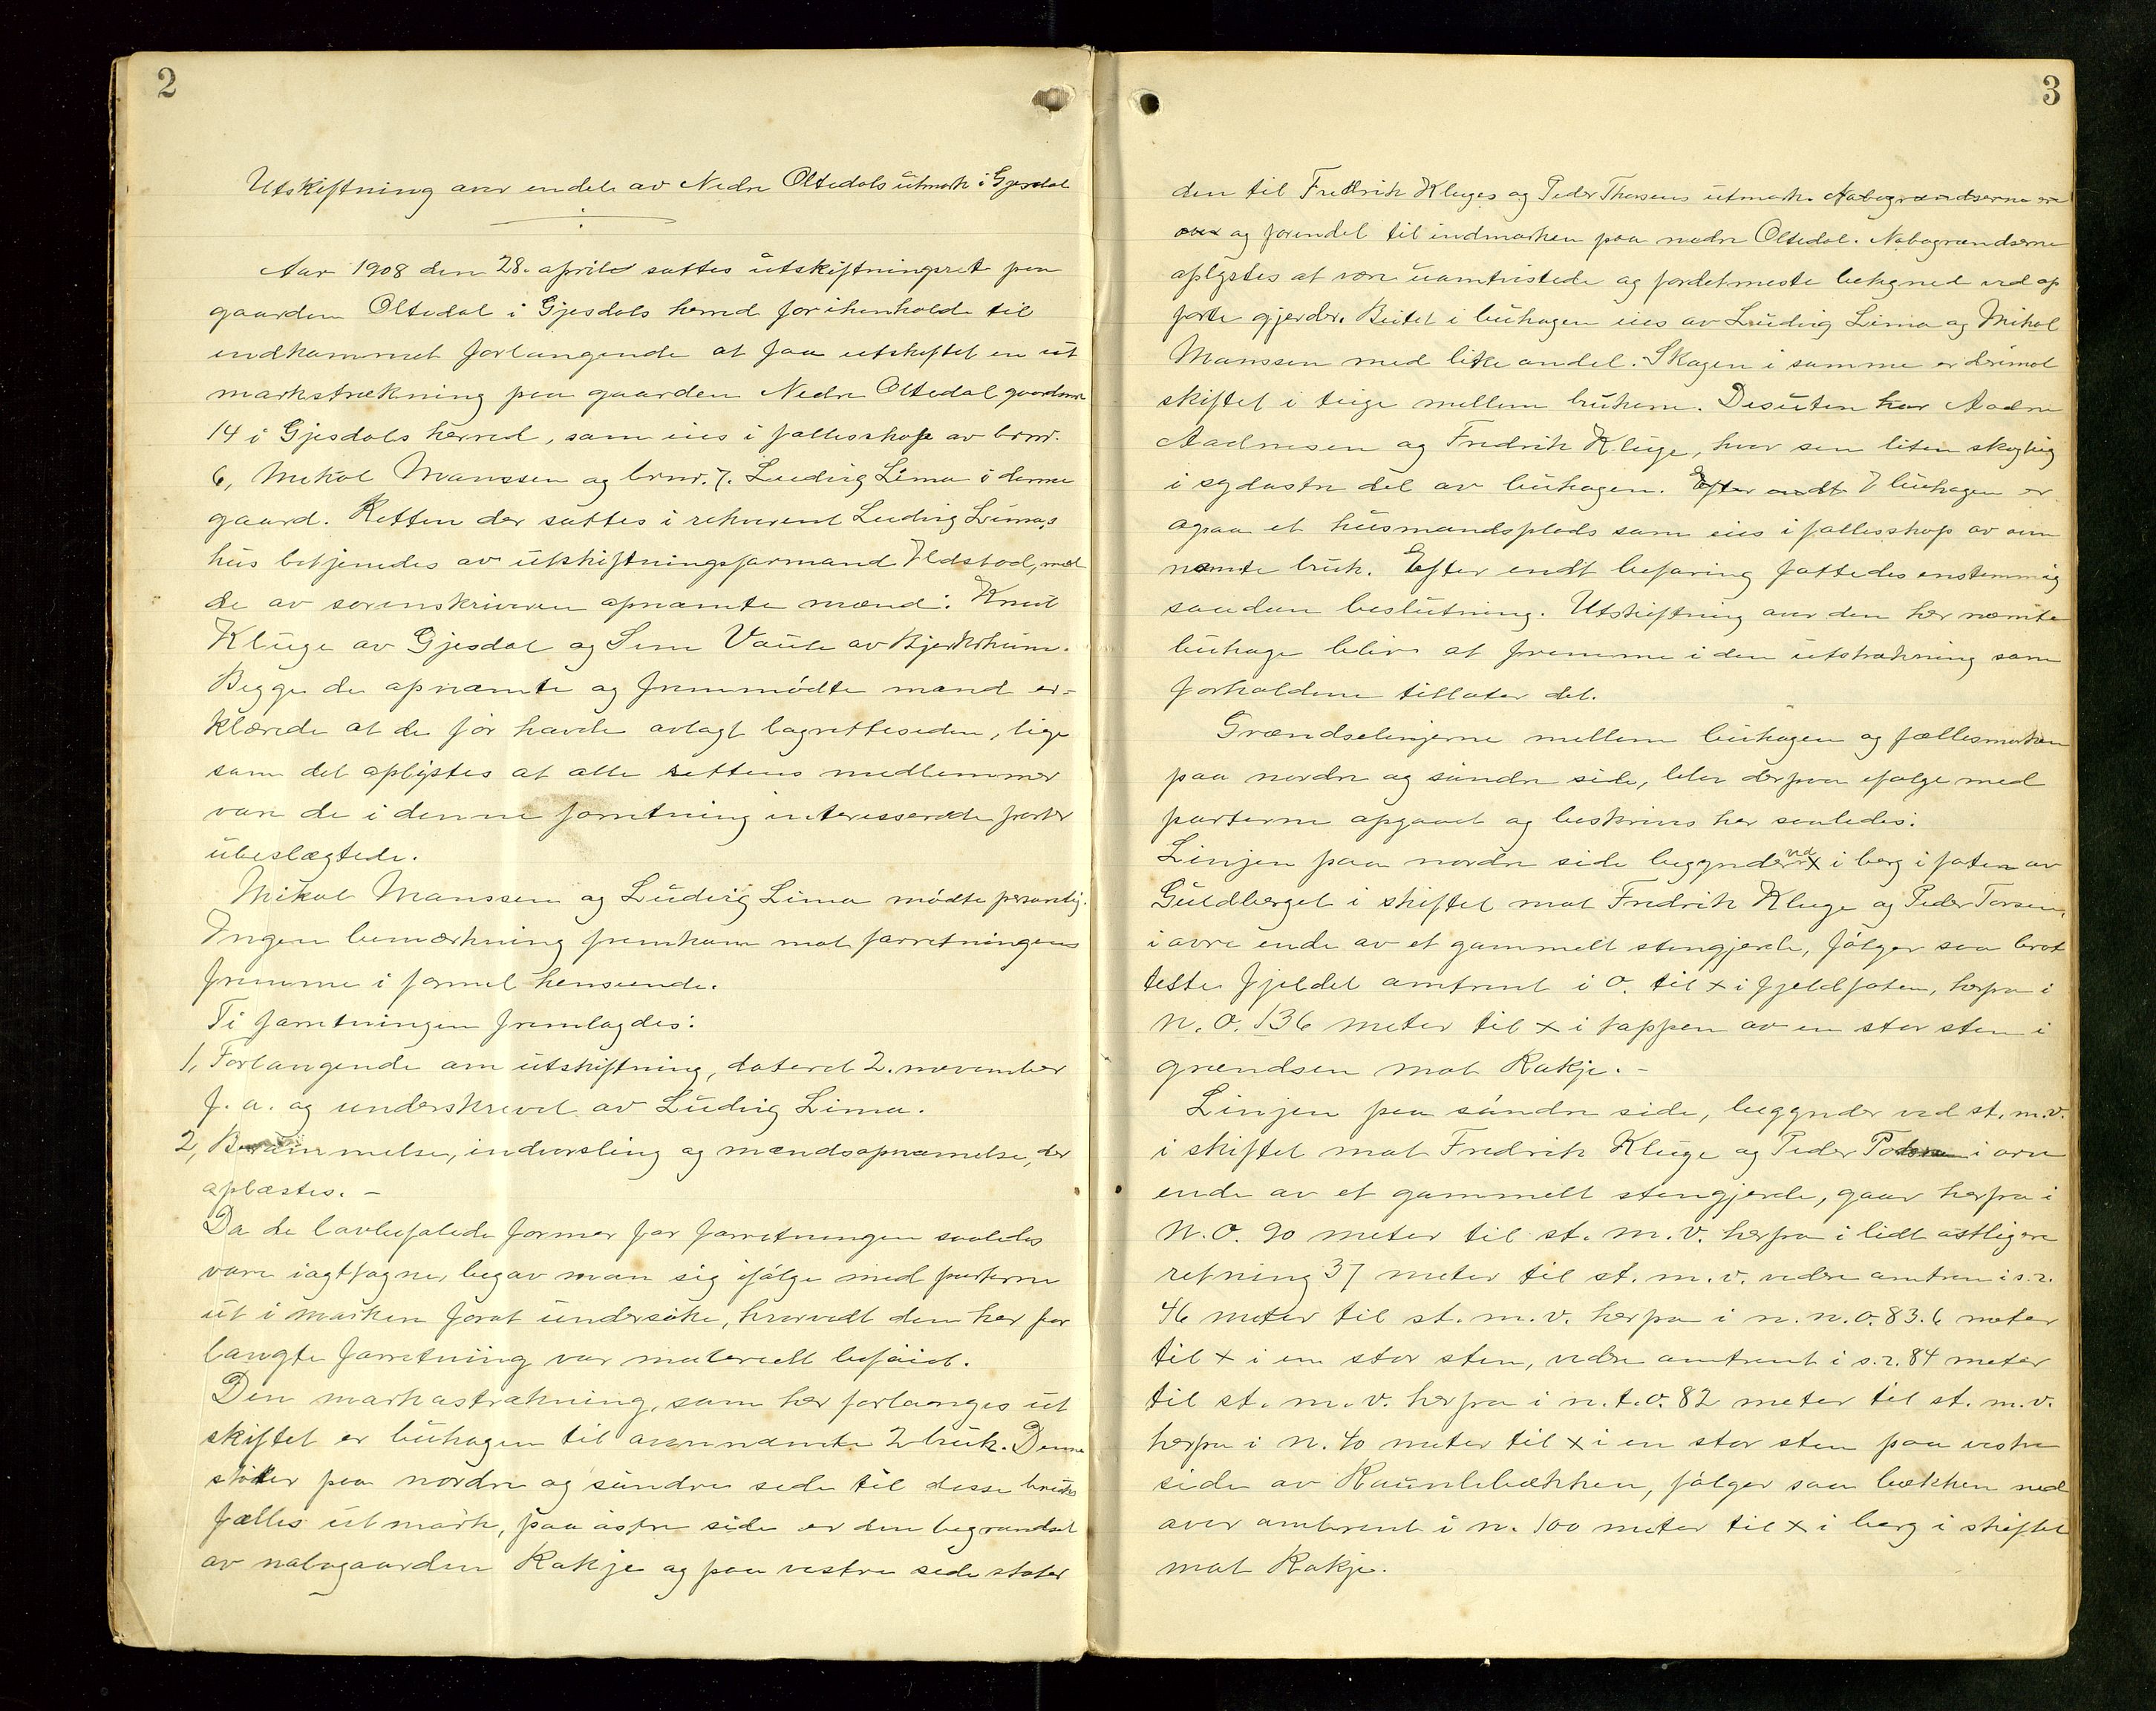 2
Utskiftning over endel av Nedre Oltedals utmark i Gjesdal
Aar 1908 den 28. april sattes utskiftningsret paa
gaarden Oltedal i Gjesdals herred for ihenhold til
indkommet forlangende at faa utskiftet en ut
markstrækning paa gaarden Nedre Oltedal gaardsnr
14 i Gjesdals herred, som eies i fællesskap av brnr.
6, Mikal Manssen og brnr. 7. Ludvig Lima i denne
gaard. Retten der sattes i rekvirent Ludvig Limas
hus betjenedes av utskiftningsformand Ildstad, med
de av sorenskriveren opnæmte mænd: Knut
Kluge av Gjesdal og Sem Vaule av Bjerkreim.
Begge de opnæmte og fremmødte mænd er-
klærede at de før havde avlagt lagretteseden, lige
som det oplystes at alle rettens medlemmer
vare de i denne forretning interesserede parter
ubeslægtede.
Mikal Manssen og Ludvig Lima mødte personlig.
Ingen bemærkning fremkom mot forretningens
fremme i formel henseende.
Til forretningen fremlagdes:
1, Forlangende om utskiftning, dateret 2. november
f. a. og underskrevet av Ludvig Lima.
2, Berammelse, indvarsling og mændsopnæmelse, der
oplæstes. -
Da de lovbefalede former for forretningen saaledes
vare iagttagne, begav man sig ifølge med parterne
ut i marken forat undersøke, hvorvidt den her for
langte forretning var materielt beføiet.
Den markastrækning, som her forlanges ut
skiftet er buhagen til ovennæmte 2 bruk. Denne
støter paa nordre og søndre side til disse bruks
fælles utmark, paa østre side er den begrændset
av nabogaarden Rakje og paa vestre side støter
3
den til Fredrik Kluges og Peder Thorsens utmark. Nabogrændserne ere
over og forendel til indmarken paa nedre Oltedal. Nabogrændserne
oplystes at være uomtvistede og fordetmeste betegned ved op
førte gjerder. Beitet i buhagen eies av Ludvig Lima og Mikal
Manssen med like andel. Skogen i samme er derimot
skiftet i teige mellem brukene. Desuten har Aadne
Aadnesen og Fredrik Kluge, hver sin liten skogteig
i sydøstre del av buhagen. Efter endt I buhagen er
ogsaa et husmandsplads som eies i fællesskap av oven
næmte bruk. Efter endt befaring fattedes enstemmig
saadan beslutning. Utskiftning over den her næmte
buhage bliver at fremme i den utstrækning som
forholdene tillater det.
Grændselinjerne mellem buhagen og fællesmarken
paa nordre og søndre side, blev derpaa ifølge med
parterne opgaaet og beskrives her saaledes:
Linjen paa nordre side begynder ved x i berg i foten av
Guldberget i skiftet mot Fredrik Kluge og Peder Torsen,
i øvre ende av et gammelt stengjerde, følger saa brat
teste fjeldet omtrent i o. til x i fjeldfoten, herfra i
n. o. 136 meter til x i toppen av en stor sten i
grændsen mot Rakje. -
Linjen paa søndre side, begynder ved st. m. v.
i skiftet mot Fredrik Kluge og Peder i øvre
ende av et gammelt stengjerde, gaar herfra i
n. o. 90 meter til st. m. v. herfra i lidt østligere
retning 37 meter til st. m. v. videre omtren i s. r.
46 meter til st. m. v. herfra i n. n. o. 83.6 meter
til x i en stor sten, videre omtrent i s. r. 84 meter
til st. m. v. herfra i n. t. o. 82 meter til st. m. v.
herfra i n. 40 meter til x i en stor sten paa vestre
side av Raunlebækken, følger saa bækken ned
over omtrent i n. 100 meter til x i berg i skiftet
mot Rakje.